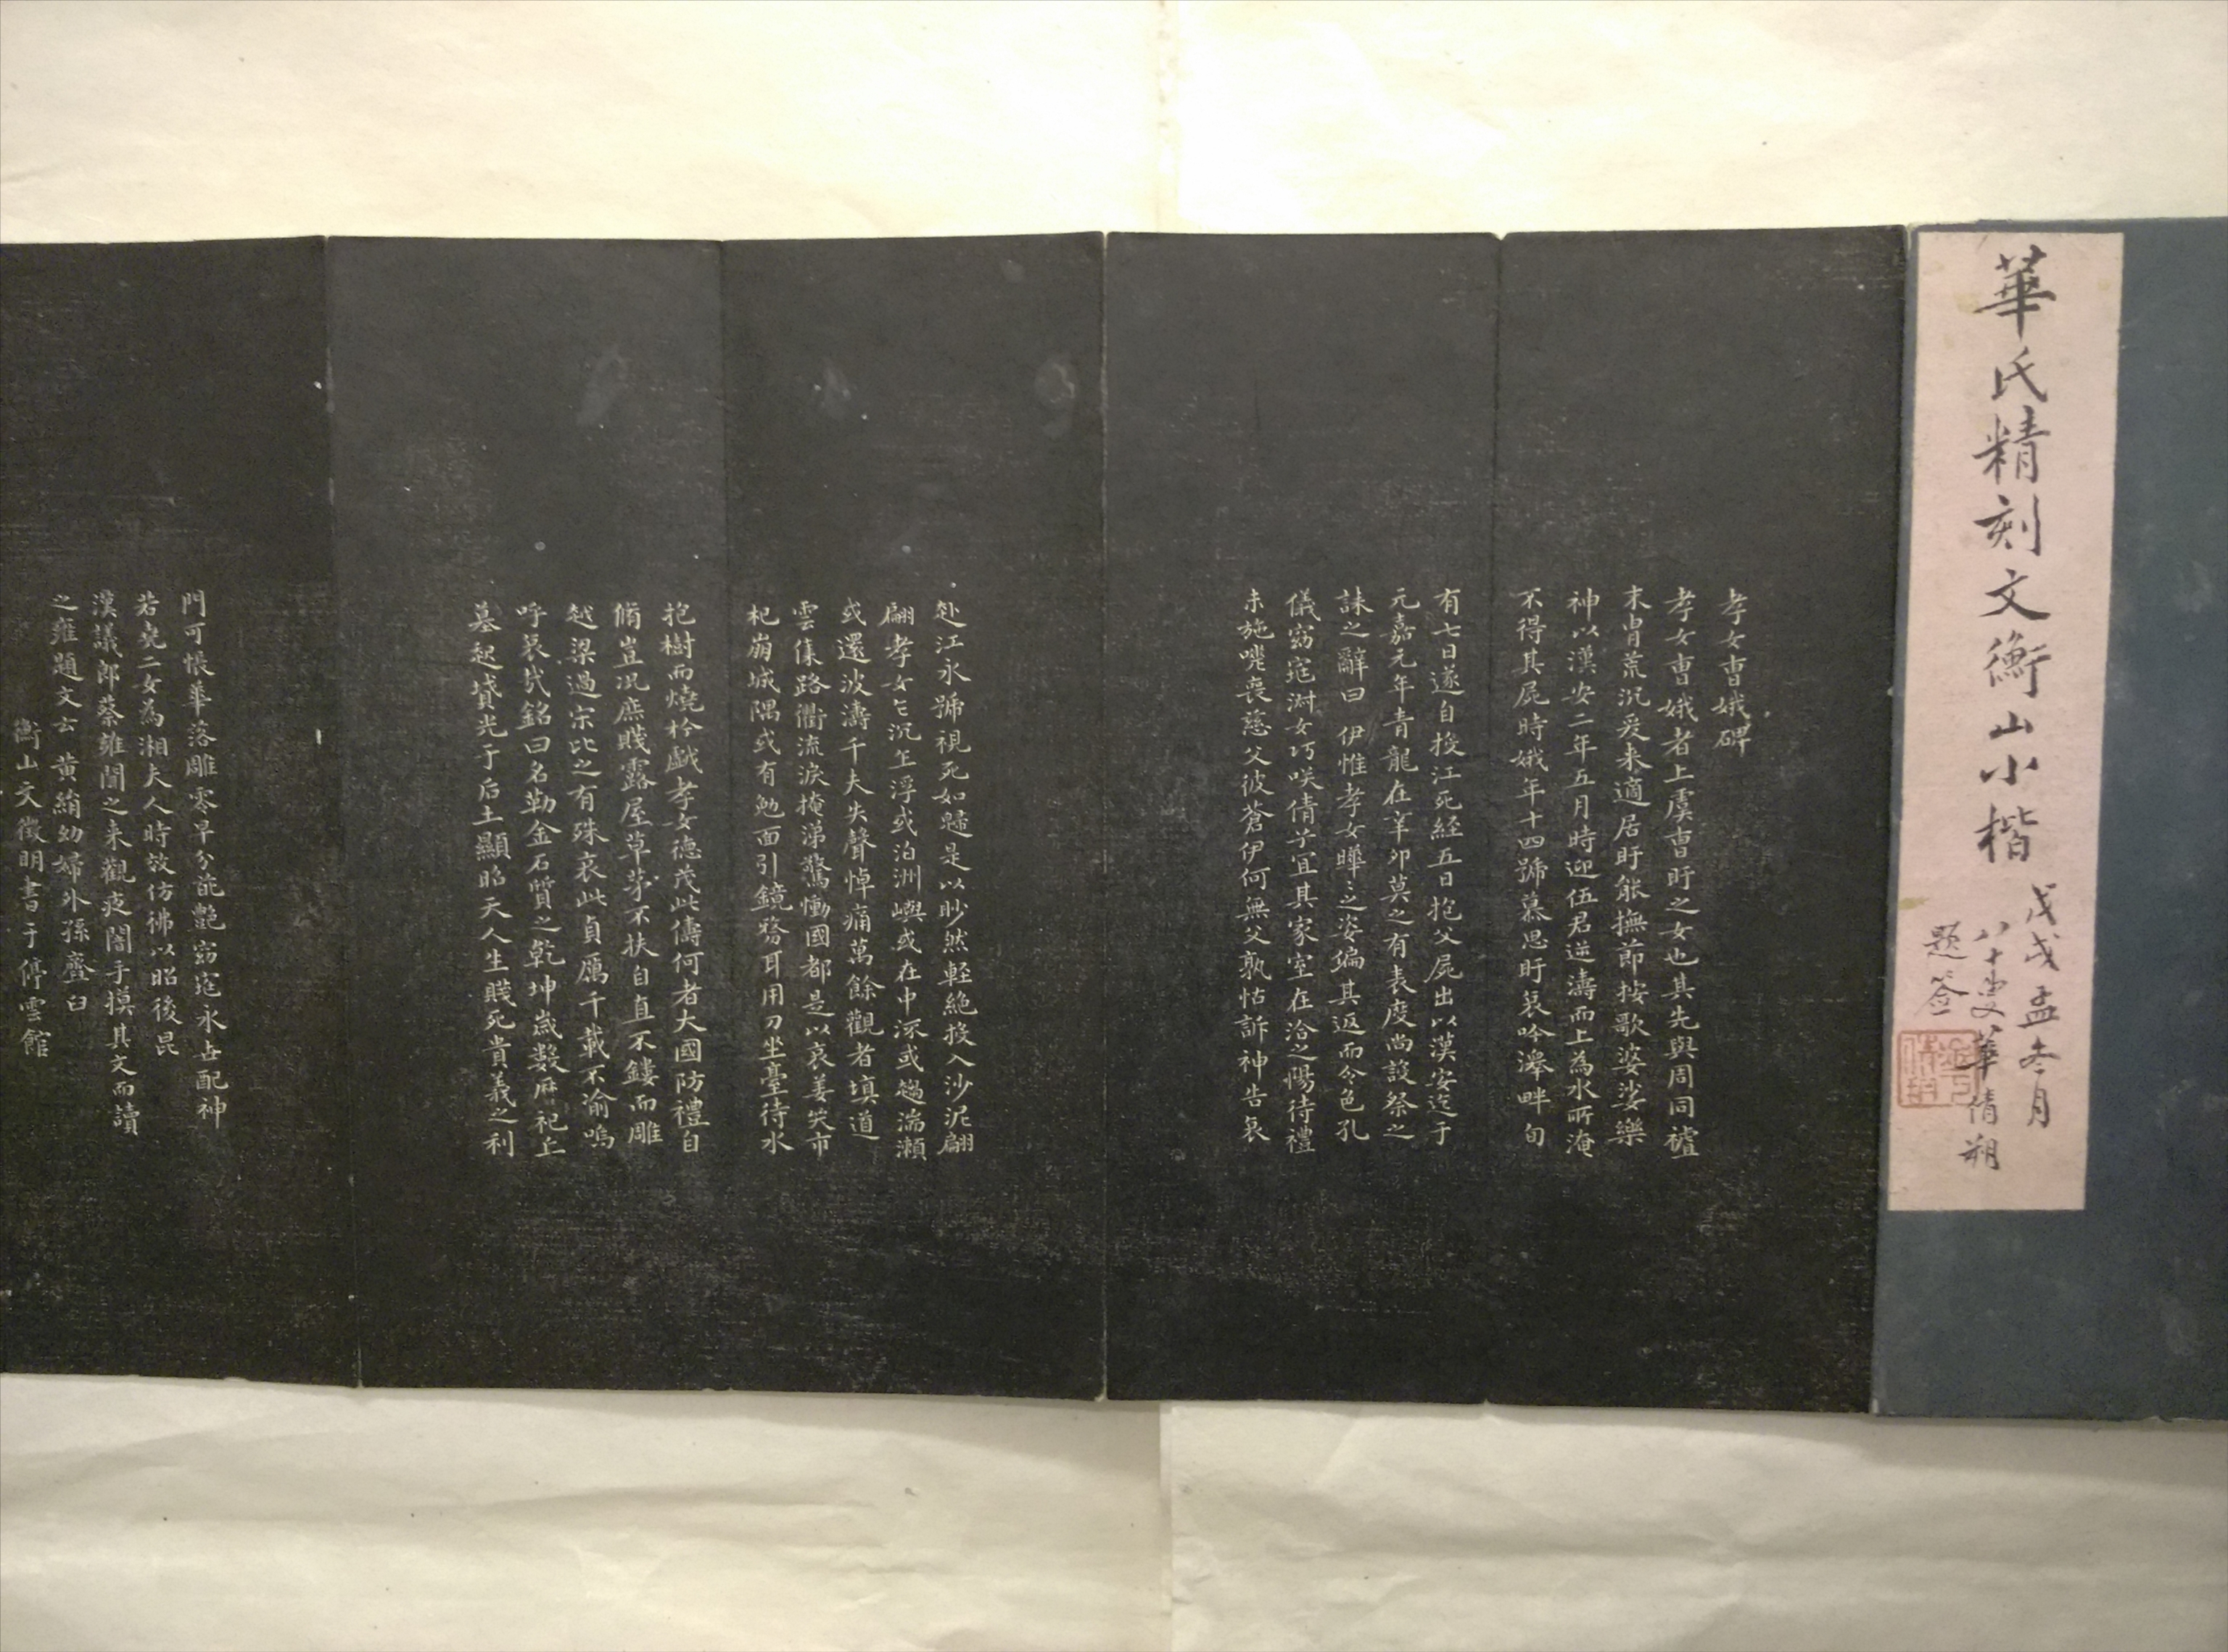 華氏精刻文衡山小楷
戊戌孟冬月
八十叟華倩朔
题签
孝女曹娥碑
孝女曹娥者上虞曹盱之女也其先與周同䄏
末胄荒沉爰来適居盱能撫莭按歌婆娑樂
神以漢安二年五月時迎伍君逆濤而上為水所淹
不得其屍時娥年十四號慕思盱哀吟澤畔旬
有七日遂自投江死経五日抱父屍出以漢安迄于
元嘉元年青龍在辛卯莫之有表度尚設祭之
誄之辭曰 伊惟孝女曄之之姿偏其返而令色孔
儀窈窕淑女巧咲倩兮宜其家室在洽之陽待禮
未施嗟喪慈父彼蒼伊何無父孰怙訴神告哀
赴江永號視死如歸是以眇然軽絶投入沙泥翩
翩孝女乍沉乍浮或泊洲嶼或在中流或趨湍瀬
或還波濤千夫失聲悼痛萬餘觀者填道
雲集路衢流淚掩涕驚慟國都是以哀姜哭市
杞崩城隅或有勉面引鏡剺耳用刀坐臺待水
抱樹而燒於戯孝女德茂此儔何者大國防禮自
脩豈况庶賤露屋草茅不扶自直不鏤而雕
越梁過宋比之有殊哀此貞厲千載不渝嗚
呼哀哉銘曰名勒金石質之乾坤嵗數厯祀丘
墓起墳光于后土顯昭天人生賤死貴義之利
門可悵華落雕零早分葩艶窈窕永世配神
若堯二女為湘夫人時效仿彿以昭後昆
漢議郎蔡雍聞之来觀夜闇手摸其文而讀
之雍題文云 黄絹幼婦外孫齏臼
衡山文徵明書于停雲館